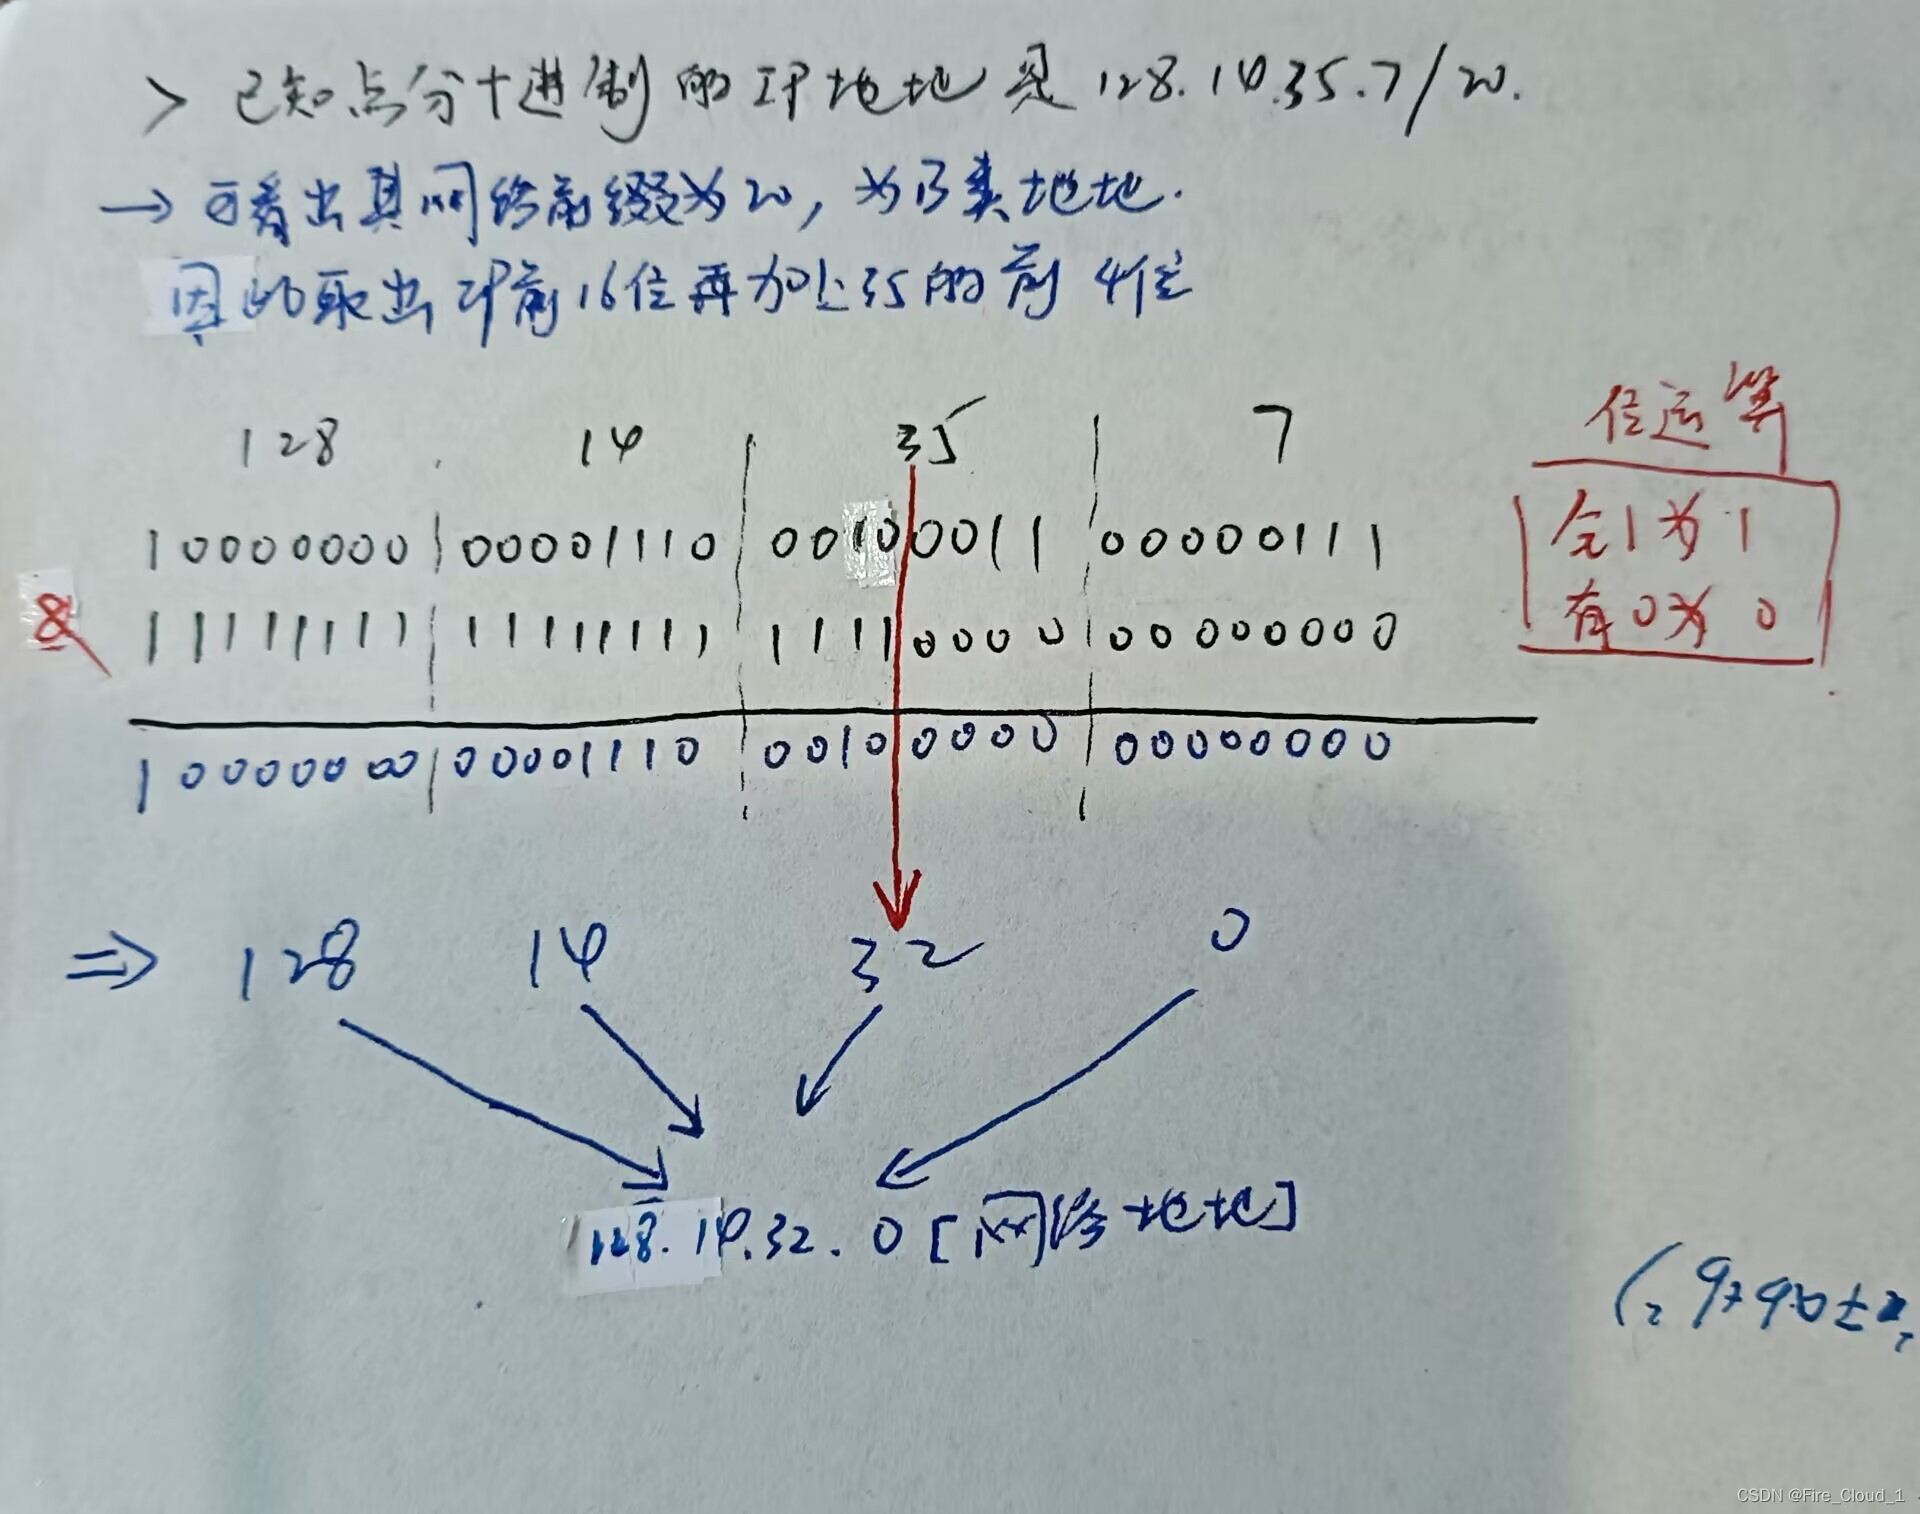 > 已知点分十进制的IP地址是128.14.35.7/20.
→ 可看出其网络前缀为20, 为B类地址.
因此取出IP前16位再加上35的前4位
128 . 14 | 35 | 7
10000000 | 00001110 | 00100011 | 00000111
& 11111111 | 11111111 | 11110000 | 00000000
10000000 | 00001110 | 00100000 | 00000000
位运算
全1为1
有0为0
⇒ 128 14 32 0
128.14.32.0 [网络地址]
CSDN @Fire_Cloud_1